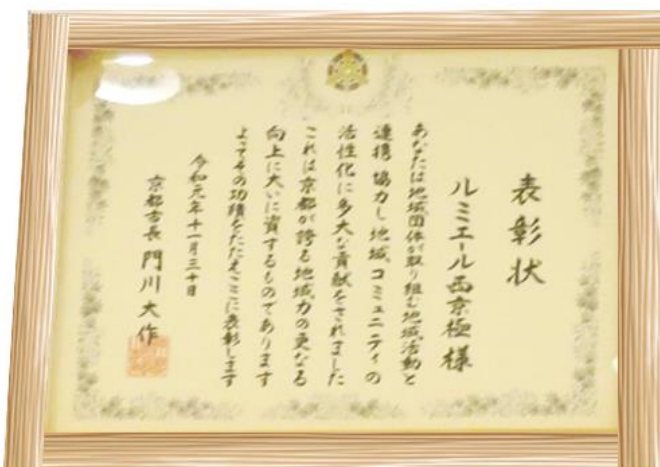 表彰状
ルミエール西京極様
あなたは地域団体が取り組む地域活動と
連携 協力し地域コミュニティの
活性化に多大な貢献をされました
これは京都が誇る地域力の更なる
向上に大いに資するものであります
よってその功績をたたえここに表彰します
令和元年十一月三十日
京都市長 門川大作